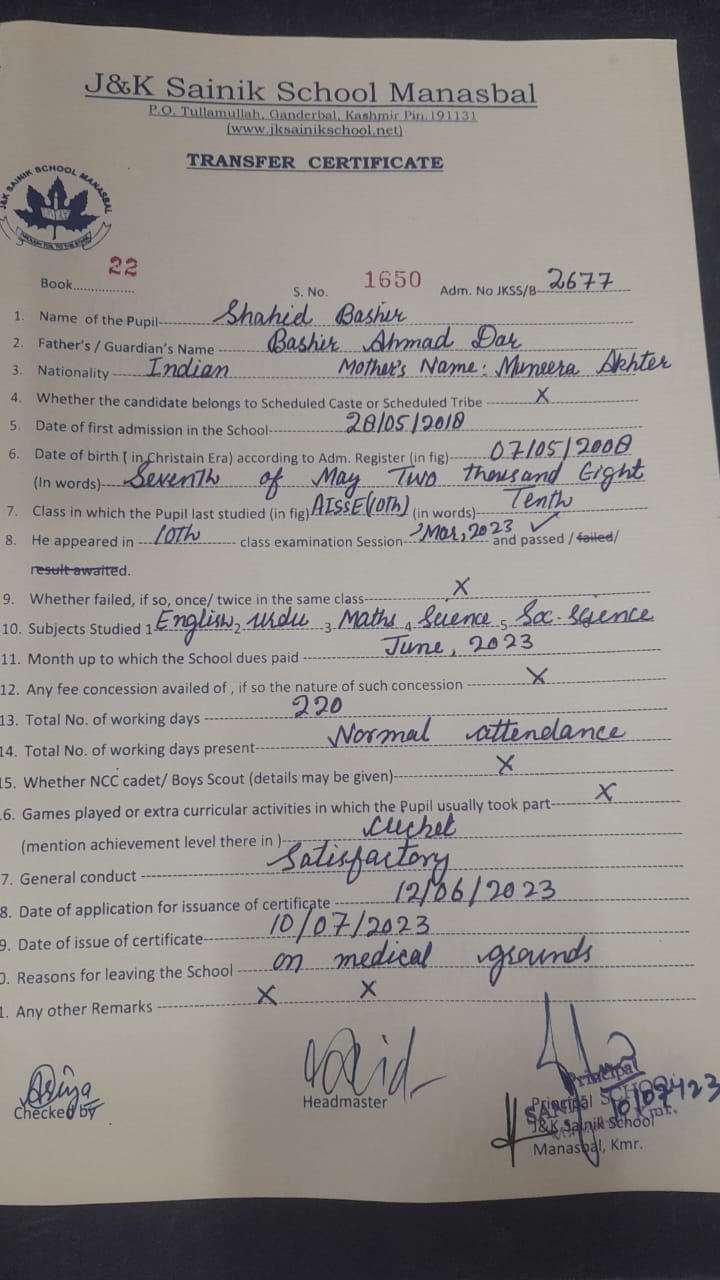 J&K Sainik School Manasbal
P.O. Tullamullah, Ganderbal, Kashmir Pin.191131
(www.jksainikschool.net)
TRANSFER CERTIFICATE
J&K SAINIK SCHOOL MANASBAL
Book 22 S. No. 1650 Adm. No JKSS/B 2677
1. Name of the Pupil Shahid Bashir
2. Father's / Guardian's Name Bashir Ahmad Dar
3. Nationality Indian Mother's Name: Muneera Akhter
4. Whether the candidate belongs to Scheduled Caste or Scheduled Tribe X
5. Date of first admission in the School 28/05/2018
6. Date of birth ( in Christain Era) according to Adm. Register (in fig) 07/05/2008
(In words) Seventh of May Two thousand Eight
7. Class in which the Pupil last studied (in fig) AISSE(10th) (in words) Tenth
8. He appeared in 10th class examination Session Mar, 2023 and passed / failed/
result awaited.
9. Whether failed, if so, once/ twice in the same class X
10. Subjects Studied 1 English 2 Urdu 3 Maths 4 Science 5 Soc. Science
11. Month up to which the School dues paid June, 2023
12. Any fee concession availed of , if so the nature of such concession X
13. Total No. of working days 220
14. Total No. of working days present Normal attendance
5. Whether NCC cadet/ Boys Scout (details may be given) X
6. Games played or extra curricular activities in which the Pupil usually took part X
(mention achievement level there in ) Cricket
7. General conduct Satisfactory
8. Date of application for issuance of certificate 12/06/2023
9. Date of issue of certificate 10/07/2023
0. Reasons for leaving the School on medical grounds
1. Any other Remarks X X
Checked by
Headmaster
Principal
Principal
10/07/23
J&K Sainik School
Manasbal, Kmr.